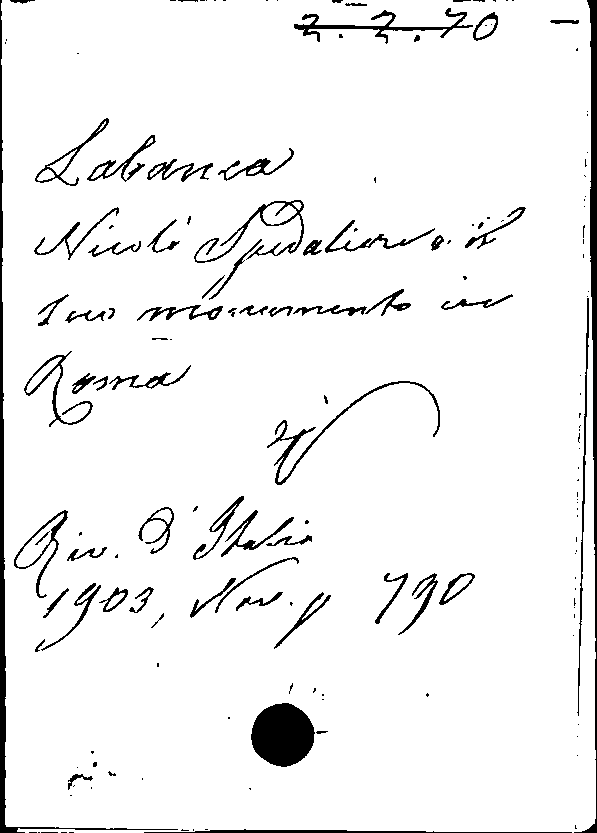 2.2.70
Labanca
Nicolò Spedalieri e il
suo monumento in
Roma
Riv. d'Italia
1903, Nov. p 790